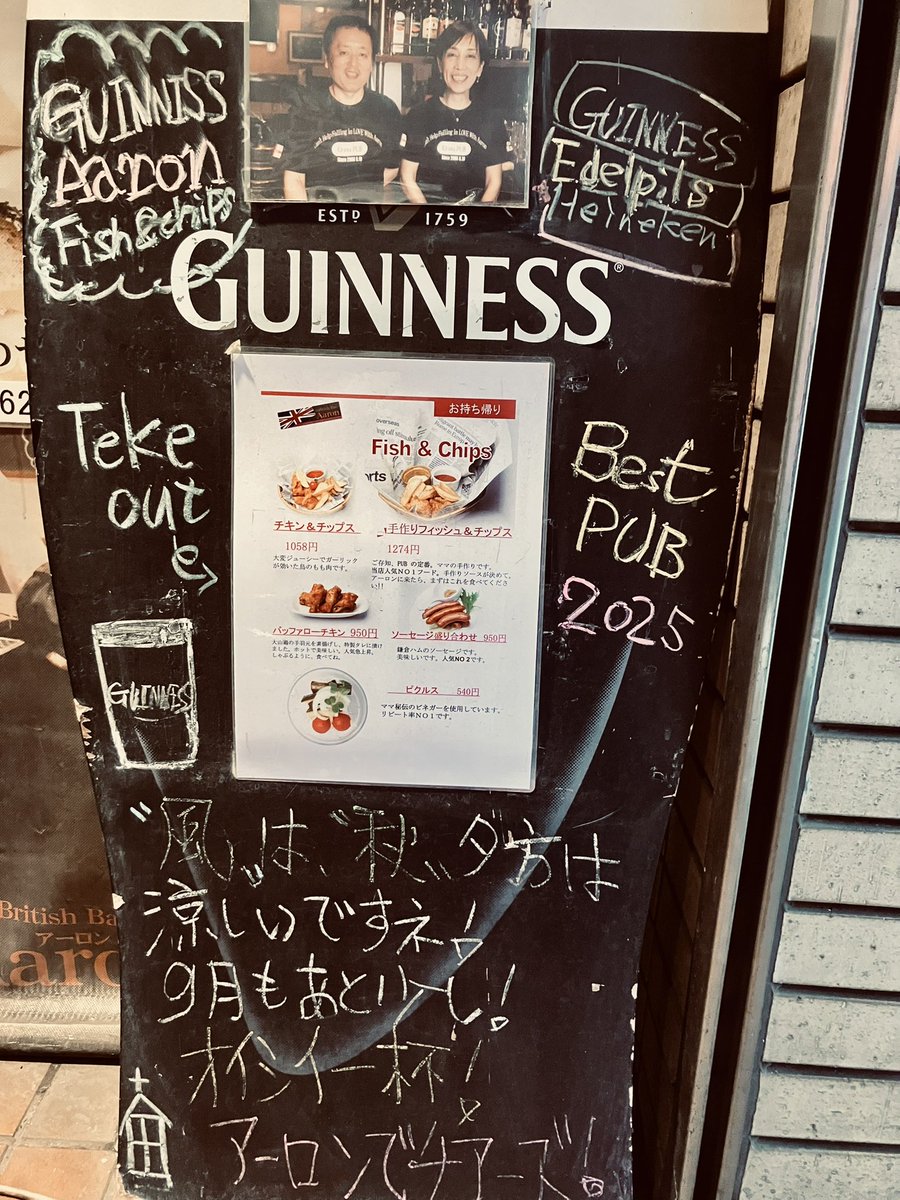 GUINNISS
Aaron
Fish & chips
GUINNESS
Edelpils
Heineken
ESTD 1759
GUINNESS
Teke
out
Best
PUB
2025
お持ち帰り
Aaron
overseas
Fish & Chips
チキン&チップス
1058円
大変ジューシーでガーリック
が効いた鳥のもも肉です。
手作りフィッシュ&チップス
1274円
ご存知、PUB の定番。ママの手作りです。
当店人気NO1フード。手作りソースが決めて。
アーロンに来たら、まずはこれを食べてくださ
い!!
バッファローチキン 950円
大山鶏の手羽元を素揚げし、特製タレに漬け
ました。ホットで美味しい。人気急上昇。
しゃぶるように、食べてね。
ソーセージ盛り合わせ 950円
鎌倉ハムのソーセージです。
美味しいです。人気NO2です。
ピクルス 540円
ママ秘伝のビネガーを使用しています。
リピート率NO1です。
GUINNESS
"風"は"秋"夕方は
涼しいですネ!
9月もあと少し!
オイシイ一杯!
アーロンでチアーズ!
62
British Ba
アーロン